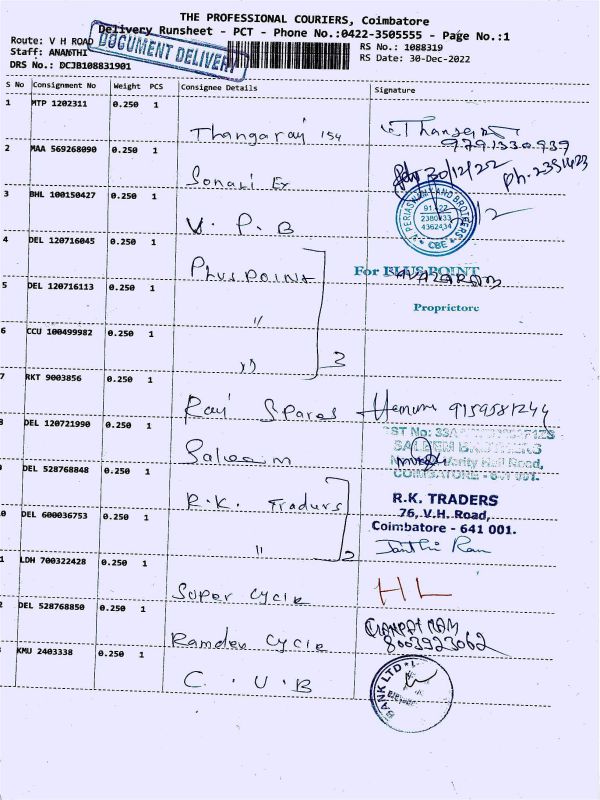 THE PROFESSIONAL COURIERS, Coimbatore
Delivery Runsheet - PCT - Phone No.:0422-3505555 - Page No.:1
Route: V H ROAD
DOCUMENT DELIVERY
RS No.: 1088319
Staff: ANANTHI
RS Date: 30-Dec-2022
DRS No.: DCJB108831901
S No Consignment No Weight PCS Consignee Details Signature
1 MTP 1202311 0.250 1
Thangaraj 154
2 MAA 569268090 0.250 1
30/12/22
Ph. 2351423
3 BHL 100150427 0.250 1
V. P. B
PERIASAMY AND BROTHERS
CBE
4 DEL 120716045 0.250 1
PLUS POINT
For PLUS POINT
5 DEL 120716113 0.250 1
Proprictore
"
6 CCU 100499982 0.250 1
"
3
7 RKT 9003856 0.250 1
Ravi Spares
9159581244
DEL 120721990 0.250 1
Saleem
COIMBATORE - 641 001.
DEL 528768848 0.250 1
R.K. Traders
R.K. TRADERS
76, V.H. Road,
Coimbatore - 641 001.
0 DEL 600036753 0.250 1
"
2
1 LDH 700322428 0.250 1
Super Cycle
HL
2 DEL 528768850 0.250 1
Ramdev Cycle
GANPAT RAM
8003923062
KMU 2403338 0.250 1
C. U. B
BANK LTD